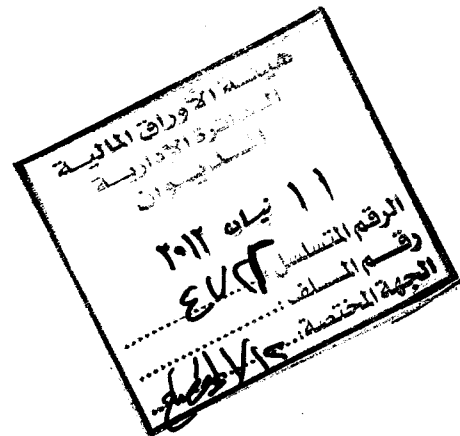 هيئة الأوراق المالية
الدائرة الادارية
الديوان
١١ نيسان ٢٠١٢
الرقم المتسلسل ٤٧٢٢
رقم الملف :
الجهة المختصة :